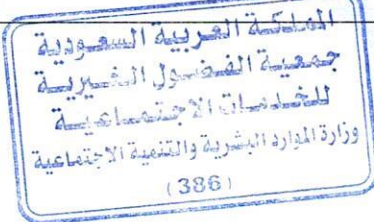 المملكة العربية السعودية
جمعية الفضول الخيرية
للخدمات الاجتماعية
وزارة الموارد البشرية والتنمية الاجتماعية
(386)